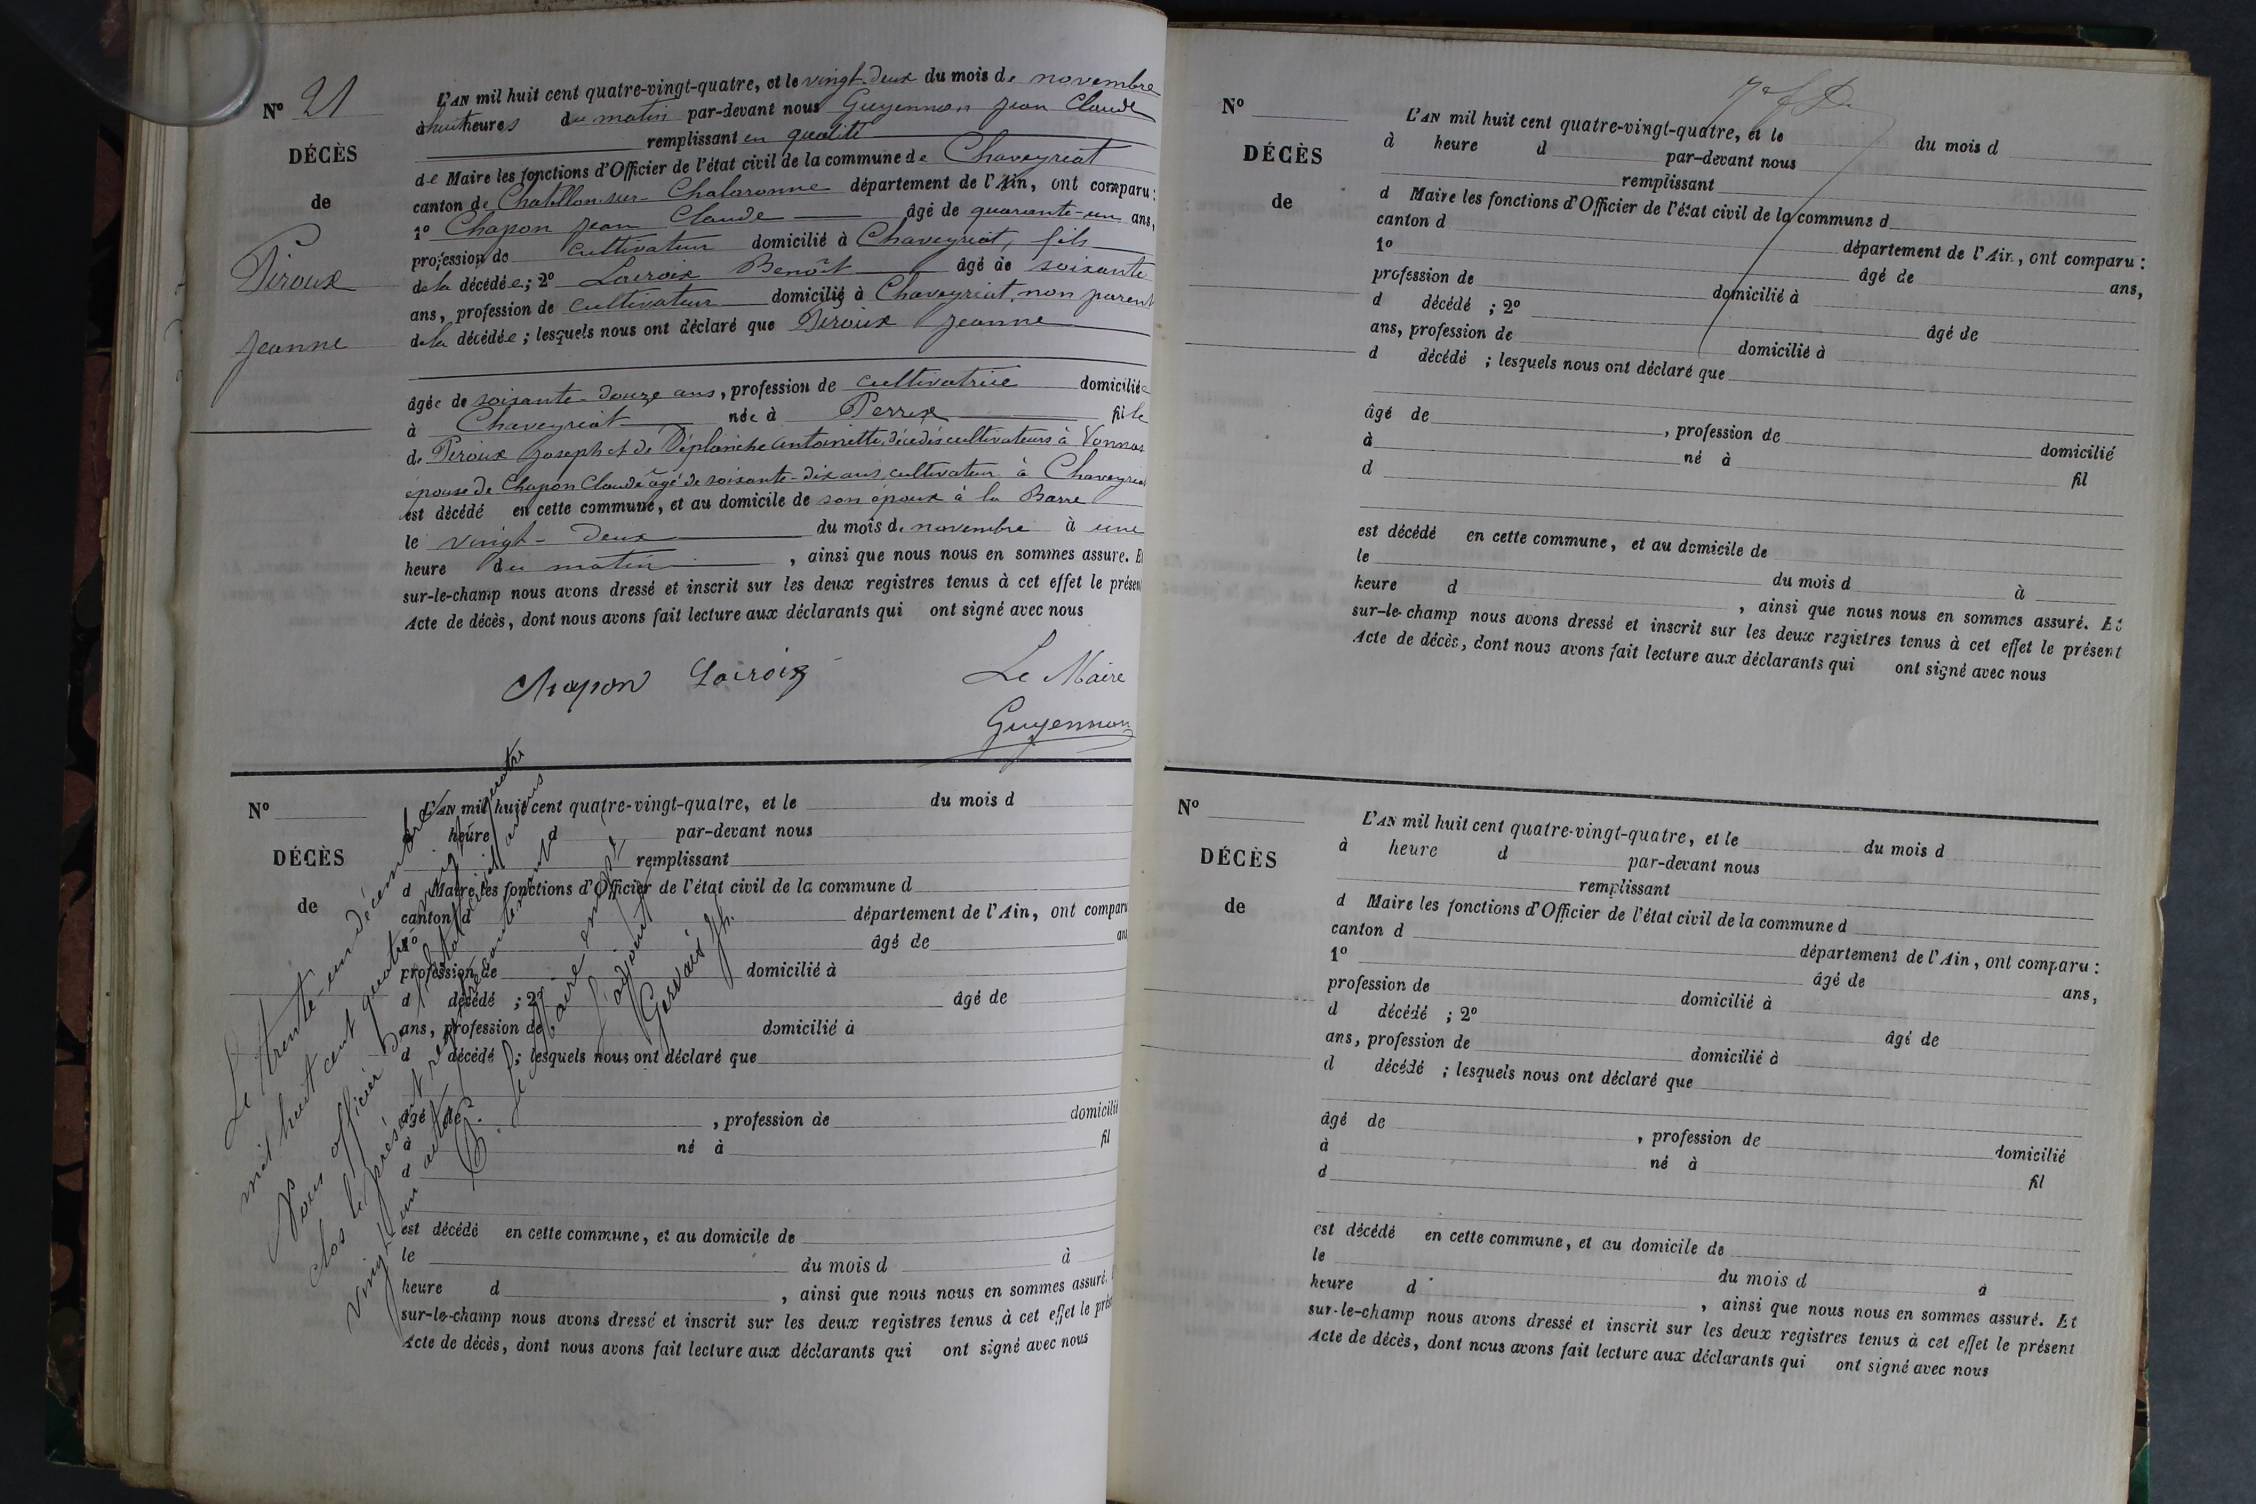 N° 21
DÉCÈS
de
Piroux
Jeanne
L'AN mil huit cent quatre-vingt-quatre, et le vingt-deux du mois de novembre
à huit heures du matin par-devant nous Guyennon Jean Claude
remplissant en qualité
de Maire les fonctions d'Officier de l'état civil de la commune de Chaveyriat
canton de Chatillon-sur-Chalaronne département de l'Ain, ont comparu :
1° Chapon Jean Claude âgé de quarante-un ans,
profession de cultivateur domicilié à Chaveyriat, fils
de la décédée ; 2° Lacroix Benoît âgé de soixante
ans, profession de cultivateur domicilié à Chaveyriat, non parent
de la décédée ; lesquels nous ont déclaré que Piroux Jeanne
âgée de soixante-douze ans, profession de cultivatrice domiciliée
à Chaveyriat née à Perrex fille
de Piroux Joseph et de Déplanche Antoinette, décédés cultivateurs à Vonnas
épouse de Chapon Claude âgé de soixante-dix ans, cultivateur à Chaveyriat
est décédé en cette commune, et au domicile de son époux à la Barre
le vingt-deux du mois de novembre à une
heure du matin, ainsi que nous nous en sommes assuré. Et
sur-le-champ nous avons dressé et inscrit sur les deux registres tenus à cet effet le présent
Acte de décès, dont nous avons fait lecture aux déclarants qui ont signé avec nous
Chapon Lacroix Le Maire
Guyennon
N°
DÉCÈS
de
L'AN mil huit cent quatre-vingt-quatre, et le du mois d
heure d par-devant nous
remplissant
d Maire les fonctions d'Officier de l'état civil de la commune d
canton d département de l'Ain, ont comparu
1° âgé de ans
profession de domicilié à
d décédé ; 2° âgé de
ans, profession de domicilié à
d décédé ; lesquels nous ont déclaré que
âgé de , profession de domicilié
à né à fil
d
est décédé en cette commune, et au domicile de
le du mois d à
heure d , ainsi que nous nous en sommes assuré.
sur-le-champ nous avons dressé et inscrit sur les deux registres tenus à cet effet le prés
Acte de décès, dont nous avons fait lecture aux déclarants qui ont signé avec nous
Le trente-un décembre
mil huit cent quatre vingt quatre
Nous officier de l'état civil avons
clos le présent registre contenant
vingt un actes.
P. le Maire empê
l'adjoint
Gervais Jh.
N°
DÉCÈS
de
L'AN mil huit cent quatre-vingt-quatre, et le du mois d
à heure d par-devant nous
remplissant
d Maire les fonctions d'Officier de l'état civil de la commune d
canton d département de l'Ain, ont comparu :
1° âgé de ans,
profession de domicilié à
d décédé ; 2° âgé de
ans, profession de domicilié à
d décédé ; lesquels nous ont déclaré que
âgé de , profession de domicilié
à né à fil
d
est décédé en cette commune, et au domicile de
le du mois d à
heure d , ainsi que nous nous en sommes assuré. Et
sur-le-champ nous avons dressé et inscrit sur les deux registres tenus à cet effet le présent
Acte de décès, dont nous avons fait lecture aux déclarants qui ont signé avec nous
N°
DÉCÈS
de
L'AN mil huit cent quatre-vingt-quatre, et le du mois d
à heure d par-devant nous
remplissant
d Maire les fonctions d'Officier de l'état civil de la commune d
canton d département de l'Ain, ont comparu :
1° âgé de ans,
profession de domicilié à
d décédé ; 2° âgé de
ans, profession de domicilié à
d décédé ; lesquels nous ont déclaré que
âgé de , profession de domicilié
à né à fil
d
est décédé en cette commune, et au domicile de
le du mois d à
heure d , ainsi que nous nous en sommes assuré. Et
sur-le-champ nous avons dressé et inscrit sur les deux registres tenus à cet effet le présent
Acte de décès, dont nous avons fait lecture aux déclarants qui ont signé avec nous